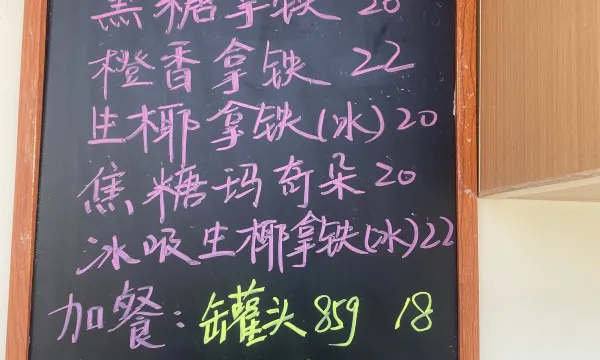 黑糖拿铁 20
橙香拿铁 22
生椰拿铁(冰)20
焦糖玛奇朵20
冰吸生椰拿铁(冰)22
加餐:罐头85g 18